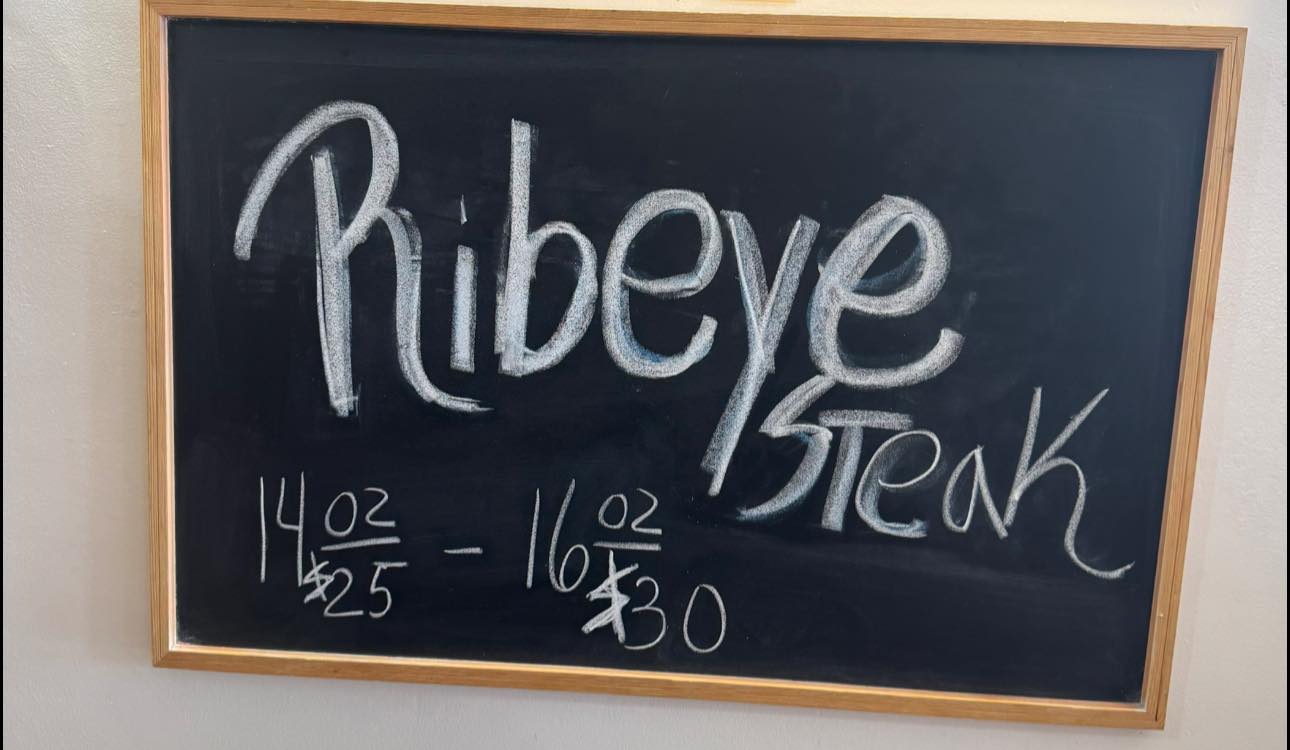 Ribeye
Steak
14 oz - 16 oz
$25 $30